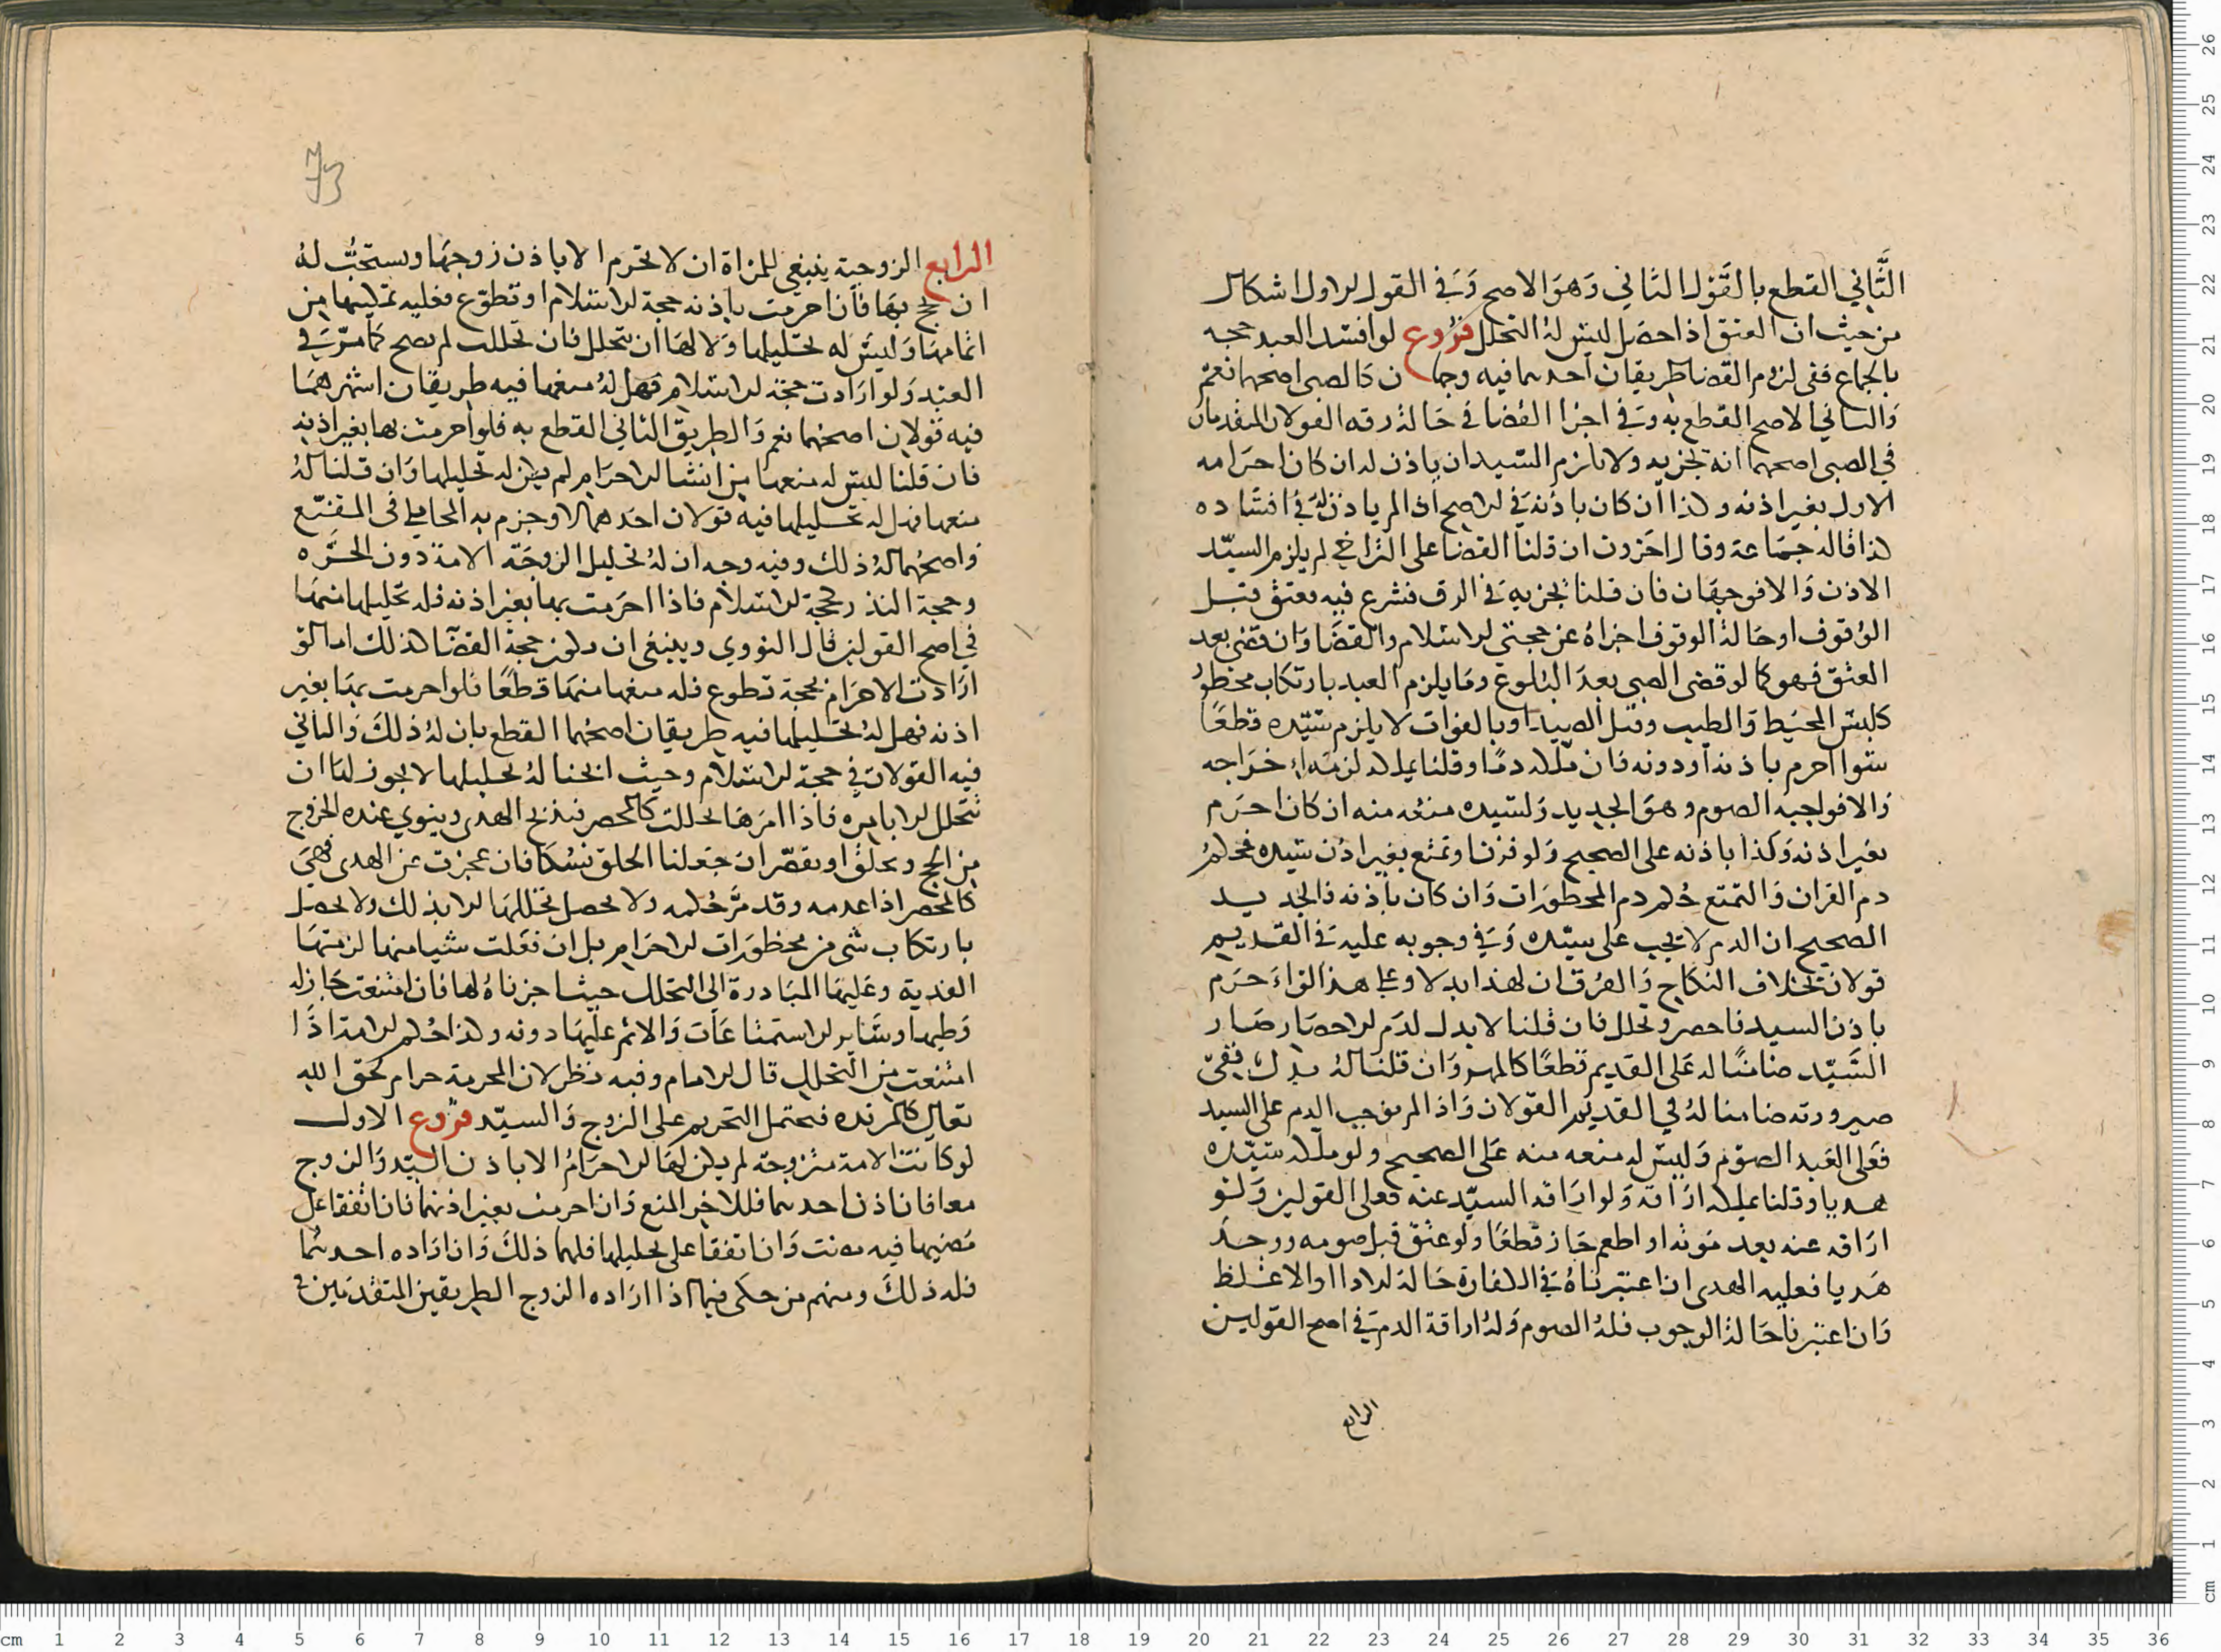 الثَّاني القطع بالقَول الثاني وَهوَ الاصح وَفي القول الاول اشكال
من حيث ان العتق اذا حصَل ليسَ لهُ التحلل فرُوع لو افسد العبد حجه
بالجماع ففي لزوم القضا طريقان احدهما فيه وجهان كالصبي اصحهما نعم
وَالثاني الاصح القطع به وَفي اجزا القضا في حَالة رقه القولان المتقدمان
في الصبي اصحهما انه يجزيه ولا يلزم السيد ان ياذن له ان كان احرَامه
الاول بغير اذنه وكذا ان كان باذنه في الاصح اذ لم ياذن له في افسَاده
كذا قاله جمَاعة وقال اخرون ان قلنا القضا على التراخي لم يلزم السيّد
الاذن وَالا فوجهَان فان قلنا يجزيه في الرق فشرع فيه فعتق قبل
الوُقوف او حَالة الوقوف اجزاهُ عن حجتي الاسلام والقضَا وَان قضى بعد
العتق فهو كما لو قضى الصبي بعدَ البلوغ ومَا يلزم العبد بارتكاب محظور
كلبسَ المخيَط وَالطيب وقتل الصيد او بالفوات لا يلزم سَيّده قطعًا
سَوا احرم باذنه او دونه فان ملكه دمًا وقلنا يملكه لزمَه اخرَاجه
وَالا فواجبه الصوم وهوَ الجديد وَلسَيده منعُه منه ان كان احرَم
بغير اذنه وَكذا باذنه على الصحيح وَلو قرن او تمتع بغير اذن سَيده فحكمُ
دم القران وَالتمتع حُكم دم المحظورَات وَان كان باذنه فالجديد
الصحيح ان الدم لا يجب عَلى سيّده وَفي وجوبه عليه في القديم
قولان بخلاف النكاح وَالفرق ان لهذا بدلا وعلى هذا لو احرَم
باذن السيد فاحصر وتحلل فان قلنا لا بدل لدَم الاحصَار صَار
السَّيّد ضامنًا له عَلى القديم قطعًا كالمهر وَان قلنا لهُ بدل ففي
صيرورته ضامنا لهُ في القديم القولان وَاذا لم نوجب الدم على السيد
فعَلى العَبد الصوَم وَليسَ له منعه منه عَلى الصحيح ولو ملكه سَيّده
هديا وقلنا يملكه ارَاقه وَلو ارَاقه السيّد عنه فعلى القولين وَلو
ارَاقه عنه بعد مَوته او اطعم جَاز قطعًا ولو عتق قبل صومه ووجدَ
هَديا فعليه الهدي ان اعتبرناهُ في الكفارة حَالة الادا او الاغلظ
وَان اعتبرنا حَالة الوجوب فلهُ الصوم وَلهُ اراقة الدم في اصح القوَلين
الرابع
73
الرابع الزوجية ينبغي للمرَاة ان لا تحرم الا باذن زوجهَا ويستحبُّ لهُ
ان يحج بهَا فان احرمت باذنه حجة الاسلام او تطوّع فعليه تمكينها من
اتمامهَا وَليسَ له تحليلها وَلا لهَا ان تتحلل فان تحللت لم يصح كما مرّ في
العبد وَلو ارَادت حجة الاسلام فهل لهُ منعها فيه طريقان اشهرهمَا
فيه قولان اصحهما نعم وَالطريق الثاني القطع به فلو احرمت بها بغير اذنه
فان قلنا ليسَ له منعها من انشا الاحرَام لم يكن له تحليلها وَان قلنا لهُ
منعها فهل له تحليلها فيه قولان احدهما لا وجزم به المحاملي في المقنع
وَاصحهما لهُ ذلك وفيه وجه ان لهُ تحليل الزوجَة الامة دون الحُرَّه
وحجة النذر كحجة الاسلام فاذا احرَمت بها بغير اذنه فله تحليلها منهَا
في اصح القولين قال النووي وينبغي ان يكون حجة القضَا كذلك اما لو
ارَادت الاحرَام بحجة تطوع فله منعها منهَا قطعًا فلو احرمت بهَا بغير
اذنه فهل لهُ تحليلها فيه طريقان اصحهما القطع بان لهُ ذلكَ وَالثاني
فيه القولان في حجة الاسلام وحيث ابحنا لهُ تحليلها لا يجوز لهَا ان
تتحلل الا بامره فاذا امرَها تحللت كالمحصر فتذبح الهدي وينوي عنده الخروج
من الحج وتحلق او تقصّر ان جعلنا الحلق نسُكا فان عجزت عن الهدي فهيَ
كالمحصر اذا عدمه وقد مَرَّ حُكمه ولا يحصل تحللهَا الا بذلك ولا يحصل
بارتكاب شي من محظورَات الاحرَام بل ان فعَلت شيا منها لزمتهَا
الفدية وعَليهَا المبَادرة الى التحلل حيث اجزناهُ لها فان امتنعت جَاز له
وَطيها وسَاير الاستمتاعَات وَالاثم عليهَا دونه وكذا حُكم الامة اذَا
امتنعت من التحلل قال الامام وفيه نظر لان المحرمة حرام لحق الله
تعالى كالمرتده فيحتمل التحريم على الزوج وَالسيّد فرُوع الاول
لو كانت الامة متزوجة لم يكن لهَا الاحرَامُ الا باذن السيّد وَالزوج
معا فان اذن احدهما فللاخر المنع وَان احرمت بغير اذنهما فان اتفقا على
مُضيها فيه مضت وَان اتفقا على تحليلها فلهما ذلكَ وَان ارَاده احدهُما
فله ذلكَ ومنهم من حكى فيما اذا ارَاده الزوج الطريقين المتقدمَين في